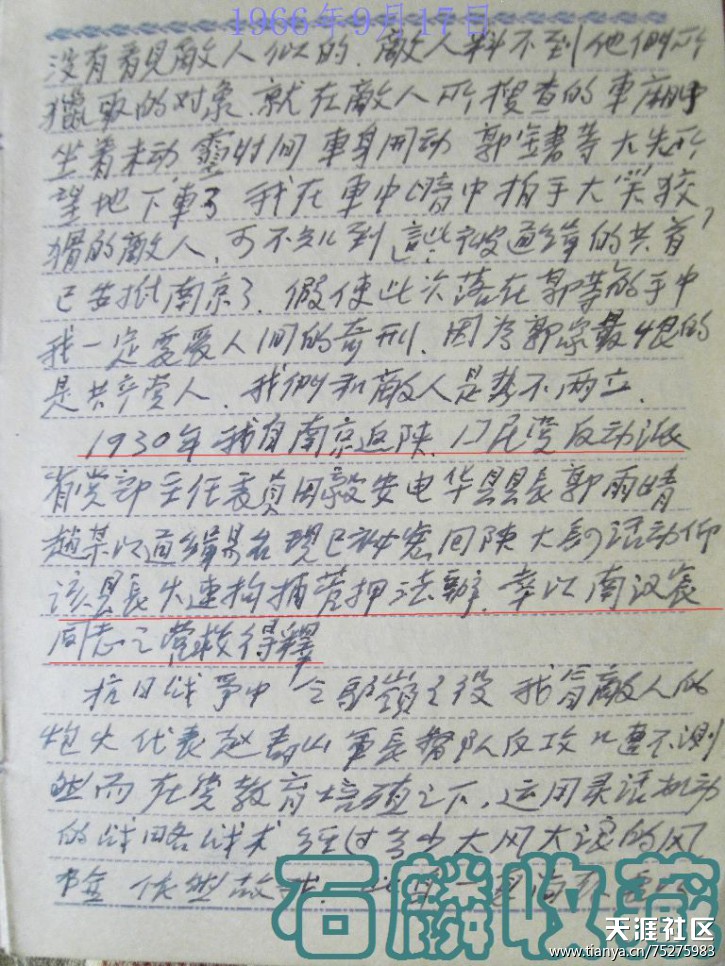 1966年9月17日
没有看見敵人似的.敵人料不到他們所
獵取的对象.就在敵人所搜查的車廂中
坐着未动,霎时间車身開动 郭等大失所
望地下車了 我在車中暗中拍手大笑狡
猾的敵人,可不知到這些被通緝的共首,
已安抵南京了.假使此次落在郭等的手中
我一定要受人间的奇刑.因为郭家最恨的
是共产党人.我們和敵人是势不两立.
1930年我自南京返陝.门民党反动派
省党部主任委員田毅安电华县县长郭雨晴
趙某以通緝某名現已秘密回陝大活动仰
该县长火速拘捕管押法辦.幸以南汉宸
同志之营救得釋
抗日战争中 令之役 我冒敵人的
炮火代表赵寿山軍長督队反攻几遭不測
然而在党教育培殖之下.运用灵活机动
的战略战术 经过多少大风大浪的风
险 依然故我.
石麟收藏
天涯社区
www.tianya.cn/75275983